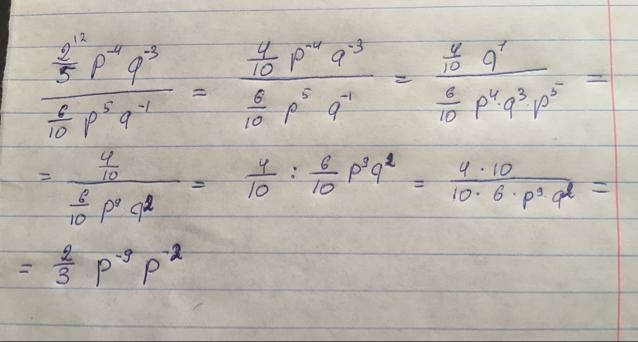 \frac{\frac{2^{12}}{5} p^{-4} q^{-3}}{\frac{6}{10} p^{5} q^{-1}} = \frac{\frac{4}{10} p^{-4} q^{-3}}{\frac{6}{10} p^{5} q^{-1}} = \frac{\frac{4}{10} q^{1}}{\frac{6}{10} p^{4} \cdot q^{3} \cdot p^{5}} =
= \frac{\frac{4}{10}}{\frac{6}{10} p^{9} q^{2}} = \frac{4}{10} : \frac{6}{10} p^{9} q^{2} = \frac{4 \cdot 10}{10 \cdot 6 \cdot p^{9} \cdot q^{2}} =
= \frac{2}{3} p^{-9} p^{-2}